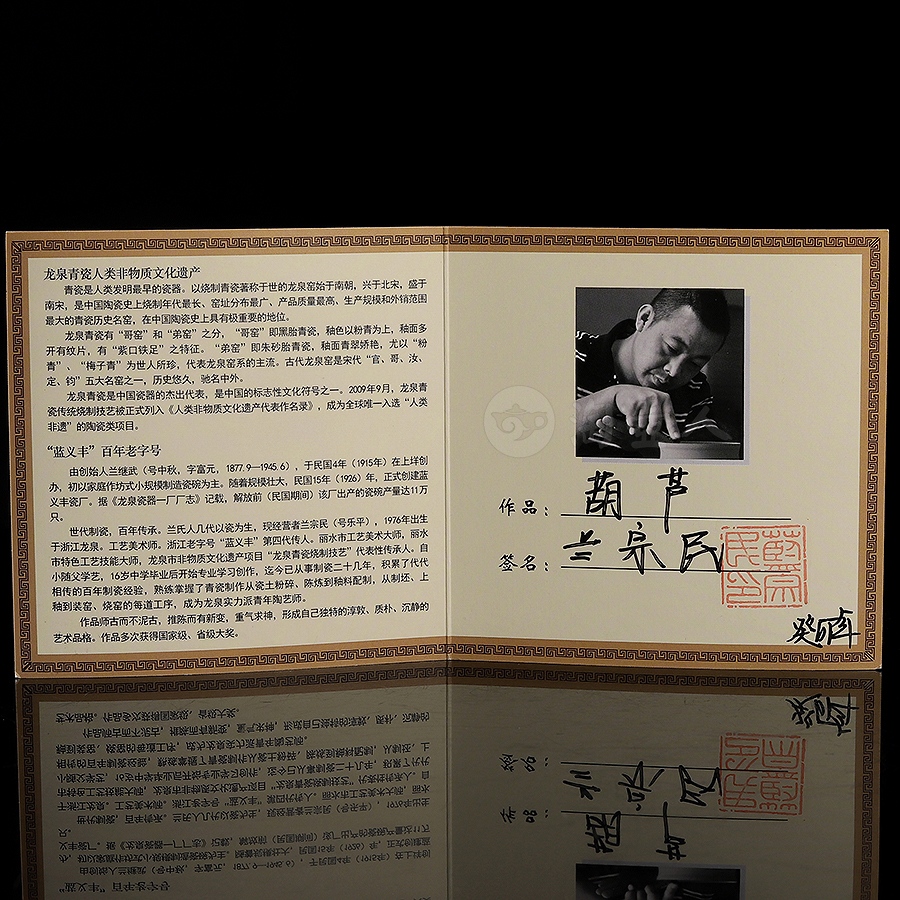 龙泉青瓷人类非物质文化遗产
青瓷是人类发明最早的瓷器。以烧制青瓷著称于世的龙泉窑始于南朝，兴于北宋，盛于
南宋，是中国陶瓷史上烧制年代最长、窑址分布最广、产品质量最高、生产规模和外销范围
最大的青瓷历史名窑，在中国陶瓷史上具有极重要的地位。
龙泉青瓷有“哥窑”和“弟窑”之分，“哥窑”即黑胎青瓷，釉色以粉青为上，釉面多
开有纹片，有“紫口铁足”之特征。“弟窑”即朱砂胎青瓷，釉面青翠娇艳，尤以“粉
青”、“梅子青”为世人所珍，代表龙泉窑系的主流。古代龙泉窑是宋代“官、哥、汝、
定、钧”五大名窑之一，历史悠久，驰名中外。
龙泉青瓷是中国瓷器的杰出代表，是中国的标志性文化符号之一。2009年9月，龙泉青
瓷传统烧制技艺被正式列入《人类非物质文化遗产代表作名录》，成为全球唯一入选“人类
非遗”的陶瓷类项目。
“蓝义丰”百年老字号
由创始人兰继武（号中秋，字富元，1877.9—1945.6），于民国4年（1915年）在上垟创
办，初以家庭作坊式小规模制造瓷碗为主。随着规模壮大，民国15年（1926）年，正式创建蓝
义丰瓷厂。据《龙泉瓷器一厂厂志》记载，解放前（民国期间）该厂出产的瓷碗产量达11万
只。
世代制瓷，百年传承。兰氏人几代以瓷为生，现经营者兰宗民（号乐平），1976年出生
于浙江龙泉。工艺美术师。浙江老字号“蓝义丰”第四代传人。丽水市工艺美术大师，丽水
市特色工艺技能大师，龙泉市非物质文化遗产项目“龙泉青瓷烧制技艺”代表性传承人。自
小随父学艺，16岁中学毕业后开始专业学习创作，迄今已从事制瓷二十几年，积累了代代
相传的百年制瓷经验，熟练掌握了青瓷制作从瓷土粉碎、陈炼到釉料配制，从制坯、上
釉到装窑、烧窑的每道工序，成为龙泉实力派青年陶艺师。
作品师古而不泥古，推陈而有新变，重气求神，形成自己独特的淳敦、质朴、沉静的
艺术品格。作品多次获得国家级、省级大奖。
作品：葫芦
签名：兰宗民
蓝宗民印
癸卯年